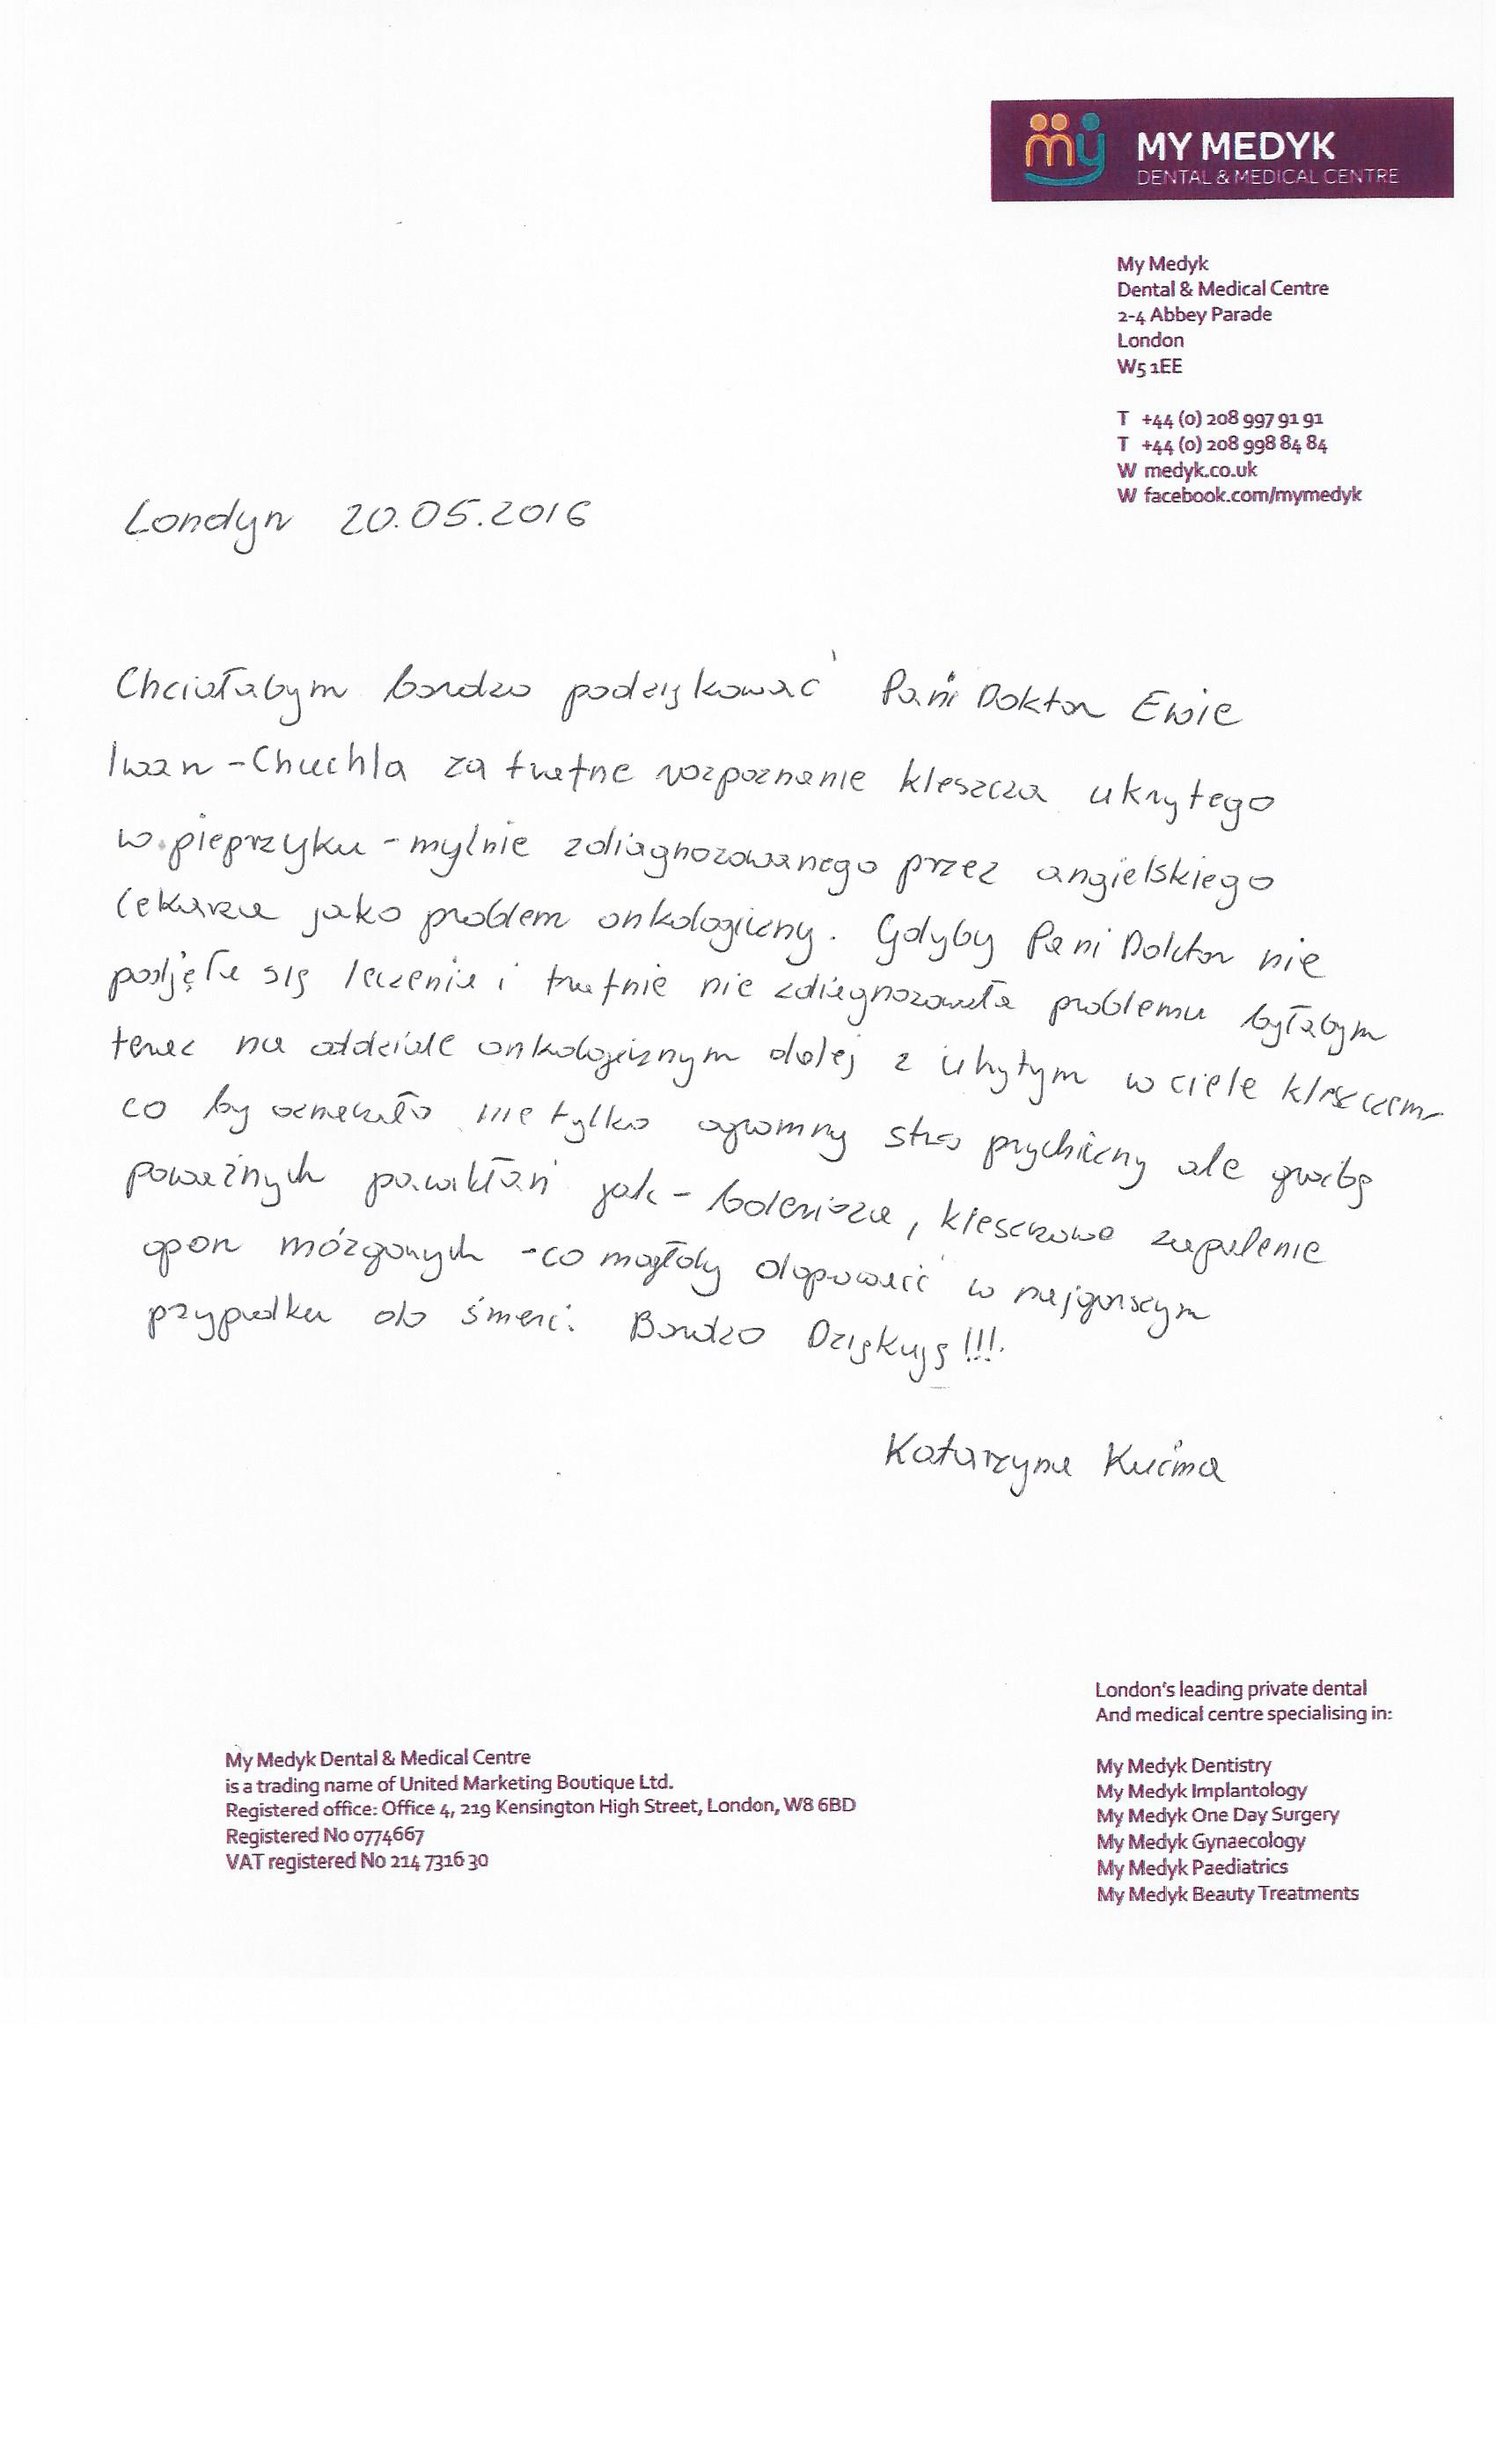 my MY MEDYK
DENTAL & MEDICAL CENTRE
My Medyk
Dental & Medical Centre
2-4 Abbey Parade
London
W5 1EE
T +44 (0) 208 997 91 91
T +44 (0) 208 998 84 84
W medyk.co.uk
W facebook.com/mymedyk
Londyn 20.05.2016
Chciałabym bardzo podziękować Pani Doktor Ewie
Iwan-Chuchla za trafne rozpoznanie kleszcza ukrytego
w pieprzyku - mylnie zdiagnozowanego przez angielskiego
lekarza jako problem onkologiczny. Gdyby Pani Doktor nie
podjęła się leczenia i trafnie nie zdiagnozowała problemu byłabym
teraz na oddziale onkologicznym dalej z ukrytym w ciele kleszczem
co by oznaczało nie tylko ogromny stres psychiczny ale groźbę
poważnych powikłań jak - bolerioza, kleszczowe zapalenie
opon mózgowych - co mogłoby doprowadzić w najgorszym
przypadku do śmierci. Bardzo Dziękuję!!!
Katarzyna Kuśma
London's leading private dental
And medical centre specialising in:
My Medyk Dentistry
My Medyk Implantology
My Medyk One Day Surgery
My Medyk Gynaecology
My Medyk Paediatrics
My Medyk Beauty Treatments
My Medyk Dental & Medical Centre
is a trading name of United Marketing Boutique Ltd.
Registered office: Office 4, 219 Kensington High Street, London, W8 6BD
Registered No 0774667
VAT registered No 214 7316 30